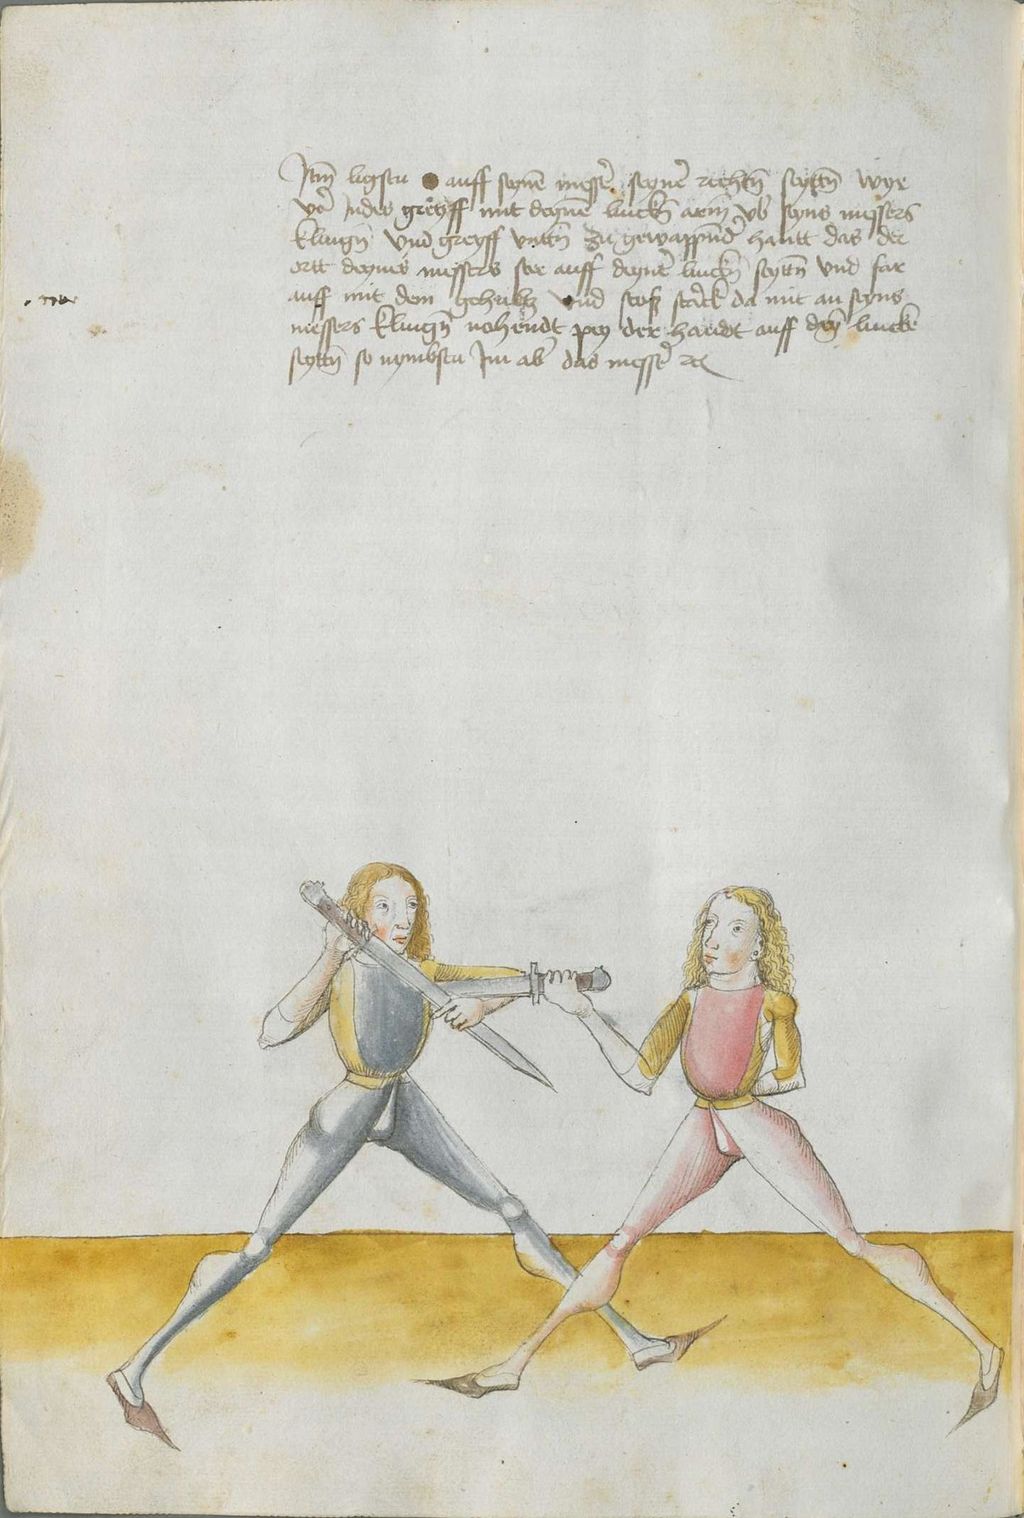 Itm̄ ligstu auff seynē messer̄ seyner̄ rechtn̄ seyttn̄ wye
vor̄ Indes greyff mit deynē linckn̄ arm̄ vb̄ seyns messers
klingn̄ vnd greyff vnttn̄ zu gewappend̄ hantt das der
ortt deynes messers ste auff deyner̄ linckn̄ seyttn̄ vnd far
auff mit dem gehultz vnd stoß starck da mit an seyns
messers klingn̄ nohendt pey der handt auff deyn̄ lincke
seyttn̄ so nymbstu Im ab̄ das messer̄ etc